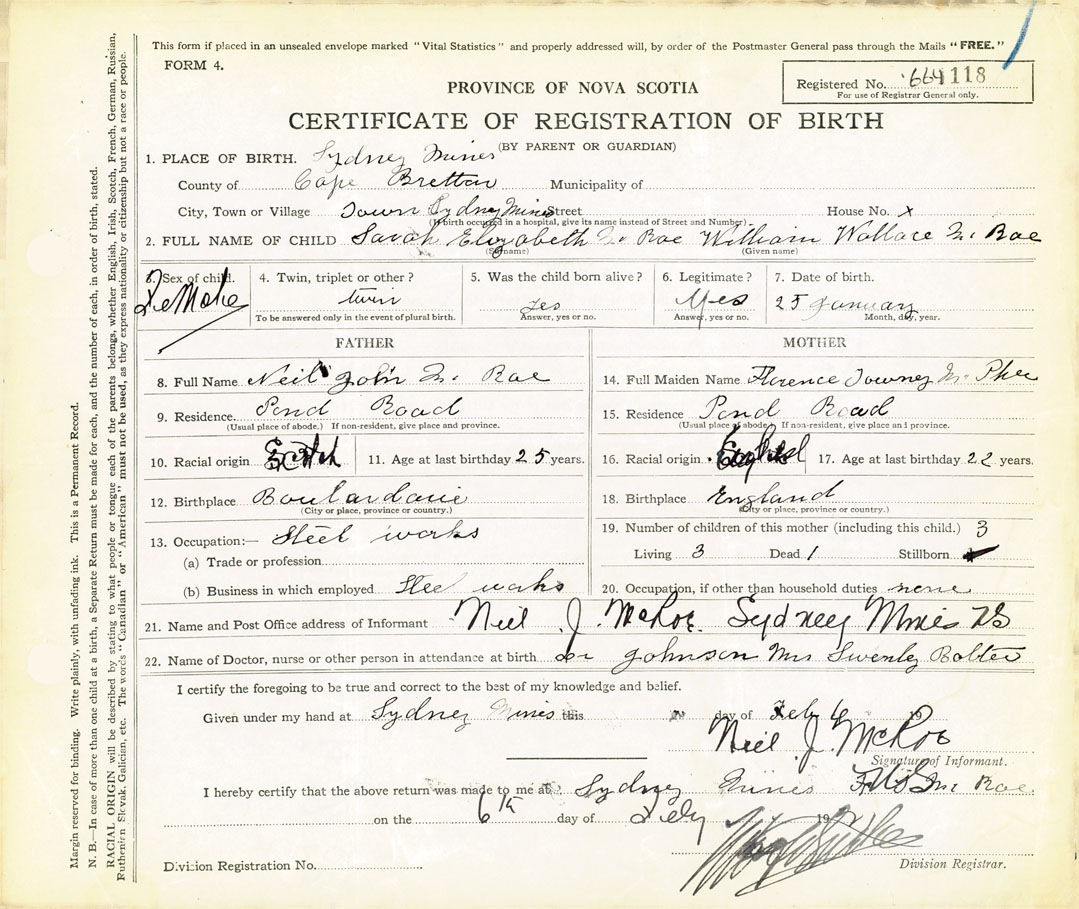 This form if placed in an unsealed envelope marked "Vital Statistics" and properly addressed will, by order of the Postmaster General pass through the Mails "FREE."
FORM 4.
PROVINCE OF NOVA SCOTIA
Registered No. 664118
For use of Registrar General only.
CERTIFICATE OF REGISTRATION OF BIRTH
(BY PARENT OR GUARDIAN)
1. PLACE OF BIRTH. Sydney Mines
County of Cape Bretton Municipality of
City, Town or Village Town Sydney Mines Street House No. x
(If birth occurred in a hospital, give its name instead of Street and Number)
2. FULL NAME OF CHILD Sarah Elizabeth Mc Rae William Wallace Mc Rae
(Surname) (Given name)
3. Sex of child. 4. Twin, triplet or other? 5. Was the child born alive? 6. Legitimate? 7. Date of birth.
FeMale twin yes Yes 25 January
To be answered only in the event of plural birth. Answer, yes or no. Answer, yes or no. Month, day, year.
FATHER MOTHER
8. Full Name Neil John Mc Rae
14. Full Maiden Name Florence Towney Mc Phee
9. Residence. Pond Road
(Usual place of abode.) If non-resident, give place and province.
15. Residence Pond Road
(Usual place of abode.) If non-resident, give place and province.
10. Racial origin Scotch 11. Age at last birthday 25 years.
16. Racial origin 17. Age at last birthday 22 years.
12. Birthplace Boulardarie
(City or place, province or country.)
18. Birthplace England
(City or place, province or country.)
13. Occupation:— Steel works
(a) Trade or profession
(b) Business in which employed Steel works
19. Number of children of this mother (including this child.) 3
Living 3 Dead 1 Stillborn
20. Occupation, if other than household duties none
21. Name and Post Office address of Informant Neil J. McRae. Sydney Mines NS
22. Name of Doctor, nurse or other person in attendance at birth Dr Johnson Mrs
I certify the foregoing to be true and correct to the best of my knowledge and belief.
Given under my hand at Sydney Mines this day of Feb 6 19
Neil J. McRae
Signature of Informant.
I hereby certify that the above return was made to me at Sydney Mines Mc Rae
on the 6th day of Feby 192
Division Registration No. Division Registrar.
Margin reserved for binding. Write plainly, with unfading ink. This is a Permanent Record.
N. B.—In case of more than one child at a birth, a Separate Return must be made for each, and the number of each, in order of birth, stated.
RACIAL ORIGIN will be described by stating to what people or tongue each of the parents belongs, whether English, Irish, Scotch, French, German, Russian,
Ruthenian Slovak, Galician, etc. The words "Canadian" or "American" must not be used, as they express nationality or citizenship but not a race or people.